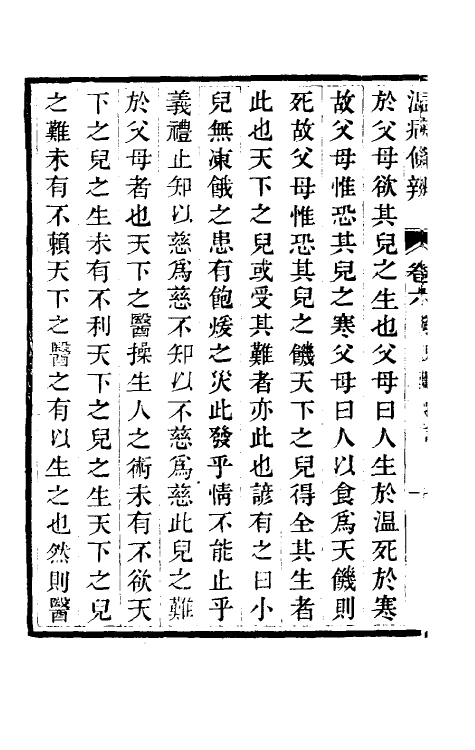 溫病條辨 卷六
於父母欲其兒之生也父母曰人生於溫死於寒
故父母惟恐其兒之寒父母曰人以食爲天饑則
死故父母惟恐其兒之饑天下之兒得全其生者
此也天下之兒或受其難者亦此也諺有之曰小
兒無凍餓之患有飽煖之災此發乎情不能止乎
義禮止知以慈爲慈不知以不慈爲慈此兒之難
於父母者也天下之醫操生人之術未有不欲天
下之兒之生未有不利天下之兒之生天下之兒
之難未有不賴天下之醫之有以生之也然則醫